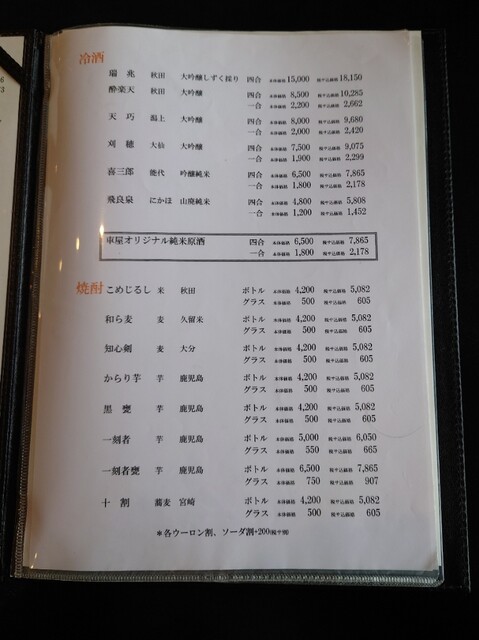 冷酒
瑞兆 秋田 大吟醸しずく採り 四合 本体価格 15,000 税サ込価格 18,150
酔楽天 秋田 大吟醸 四合 本体価格 8,500 税サ込価格 10,285
一合 本体価格 2,200 税サ込価格 2,662
天巧 潟上 大吟醸 四合 本体価格 8,000 税サ込価格 9,680
一合 本体価格 2,000 税サ込価格 2,420
刈穂 大仙 大吟醸 四合 本体価格 7,500 税サ込価格 9,075
一合 本体価格 1,900 税サ込価格 2,299
喜三郎 能代 吟醸純米 四合 本体価格 6,500 税サ込価格 7,865
一合 本体価格 1,800 税サ込価格 2,178
飛良泉 にかほ 山廃純米 四合 本体価格 4,800 税サ込価格 5,808
一合 本体価格 1,200 税サ込価格 1,452
車屋オリジナル純米原酒 四合 本体価格 6,500 税サ込価格 7,865
一合 本体価格 1,800 税サ込価格 2,178
焼酎 こめじるし 米 秋田 ボトル 本体価格 4,200 税サ込価格 5,082
グラス 本体価格 500 税サ込価格 605
和ら麦 麦 久留米 ボトル 本体価格 4,200 税サ込価格 5,082
グラス 本体価格 500 税サ込価格 605
知心剣 麦 大分 ボトル 本体価格 4,200 税サ込価格 5,082
グラス 本体価格 500 税サ込価格 605
からり芋 芋 鹿児島 ボトル 本体価格 4,200 税サ込価格 5,082
グラス 本体価格 500 税サ込価格 605
黒甕 芋 鹿児島 ボトル 本体価格 4,200 税サ込価格 5,082
グラス 本体価格 500 税サ込価格 605
一刻者 芋 鹿児島 ボトル 本体価格 5,000 税サ込価格 6,050
グラス 本体価格 550 税サ込価格 665
一刻者甕 芋 鹿児島 ボトル 本体価格 6,500 税サ込価格 7,865
グラス 本体価格 750 税サ込価格 907
十割 蕎麦 宮崎 ボトル 本体価格 4,200 税サ込価格 5,082
グラス 本体価格 500 税サ込価格 605
＊各ウーロン割、ソーダ割+200(税サ別)